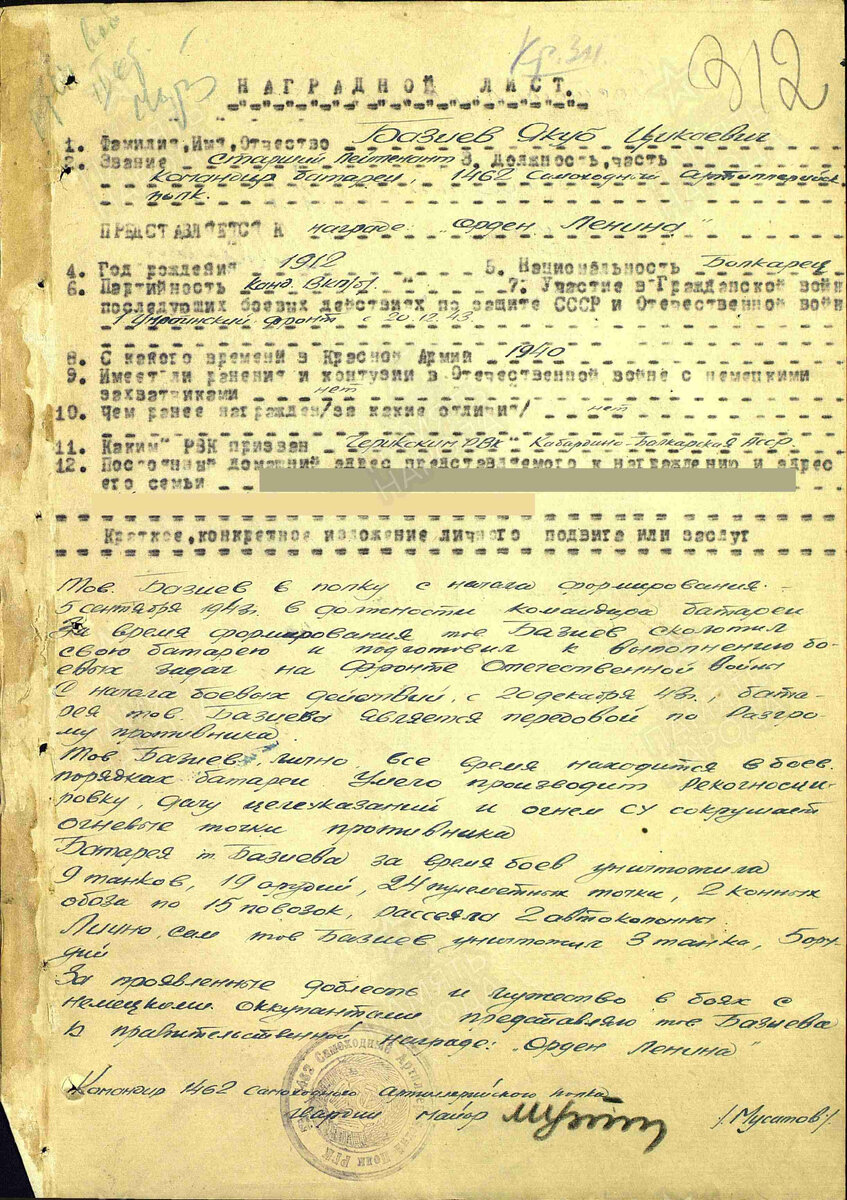 Кр. Зн.
312
НАГРАДНОЙ ЛИСТ.
1. Фамилия,Имя,Отчество Базиев Якуб Цикаевич
2. Звание старший лейтенант 3. Должность,часть
Командир батареи, 1462 самоходный артиллерийск.
полк.
ПРЕДСТАВЛЯЕТСЯ К награде: "Орден Ленина"
4. Год рождения 1912 5. Национальность Болкарец
6. Партийность Канд. ВКП/б/. 7. Участие в Гражданской войн
последующих боевых действиях по защите СССР и Отечественной войн
1 Украинский фронт с 20.12.43.
8. С какого времени в Красной Армии 1940
9. Имеет ли ранения и контузии в Отечественной войне с немецкими
захватчиками нет
10. Чем ранее награжден/за какие отличия/ нет
11. Каким РВК призван Черикским РВК Кабардино-Болкарская АССР.
12. Постоянный домашний адрес представляемого к награждению и адрес
его семьи
Краткое,конкретное изложение личного подвига или заслуг
Тов. Базиев в полку с начала формирования -
5 сентября 1943г. в должности командира батареи
За время формирования тов Базиев сколотил
свою батарею и подготовил к выполнению бо-
евых задач на фронте Отечественной войны
С начала боевых действий, с 20 декабря 43г., бата-
рея тов. Базиева является передовой по разгро-
му противника.
Тов Базиев, лично, все время находится в боев.
порядках батареи Умело производит рекогносци-
ровку, дачу целеуказаний и огнем СУ сокрушает
огневые точки противника
Батарея т. Базиева за время боев уничтожила
9 танков, 19 орудий, 24 пулеметных точки, 2 конных
обоза по 15 повозок, рассеяла 2 автоколонны.
Лично, сам тов Базиев уничтожил 3 танка, 5 ору-
дий
За проявленные доблесть и мужество в боях с
немецкими оккупантами представляю тов Базиева
к правительственной награде: "Орден Ленина"
Командир 1462 самоходного артиллерийского полка
Гвардии майор /Мусатов/.